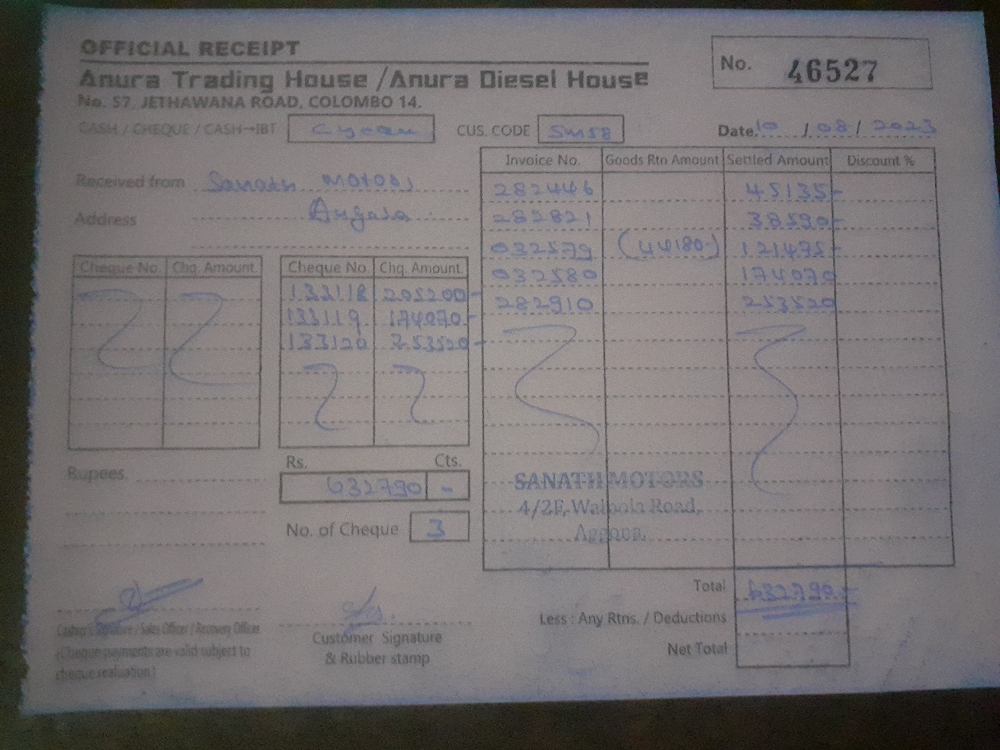 OFFICIAL RECEIPT
Anura Trading House /Anura Diesel House
No. 57, JETHAWANA ROAD, COLOMBO 14.
No. 46527
CASH / CHEQUE / CASH→IBT
CUS. CODE SM58
Date. 10 / 08 / 2023
Received from Sanath Motors
Address
Cheque No. Chq. Amount
Cheque No. Chq. Amount
133118 205200-
133119 174070-
133120 253520-
Rs. Cts.
632790 -
No. of Cheque 3
Rupees
Invoice No. Goods Rtn Amount Settled Amount Discount %
282446 45135-
282821 38590-
032579 (44180-) 121475-
032580 174070
282910 253520
SANATH MOTORS
4/2F, Walpola Road,
Total 632790-
Less : Any Rtns. / Deductions
Net Total
Cashier's Signature / Sales Officer / Recovery Officer
(Cheque payments are valid subject to
cheque realisation)
Customer Signature
& Rubber stamp